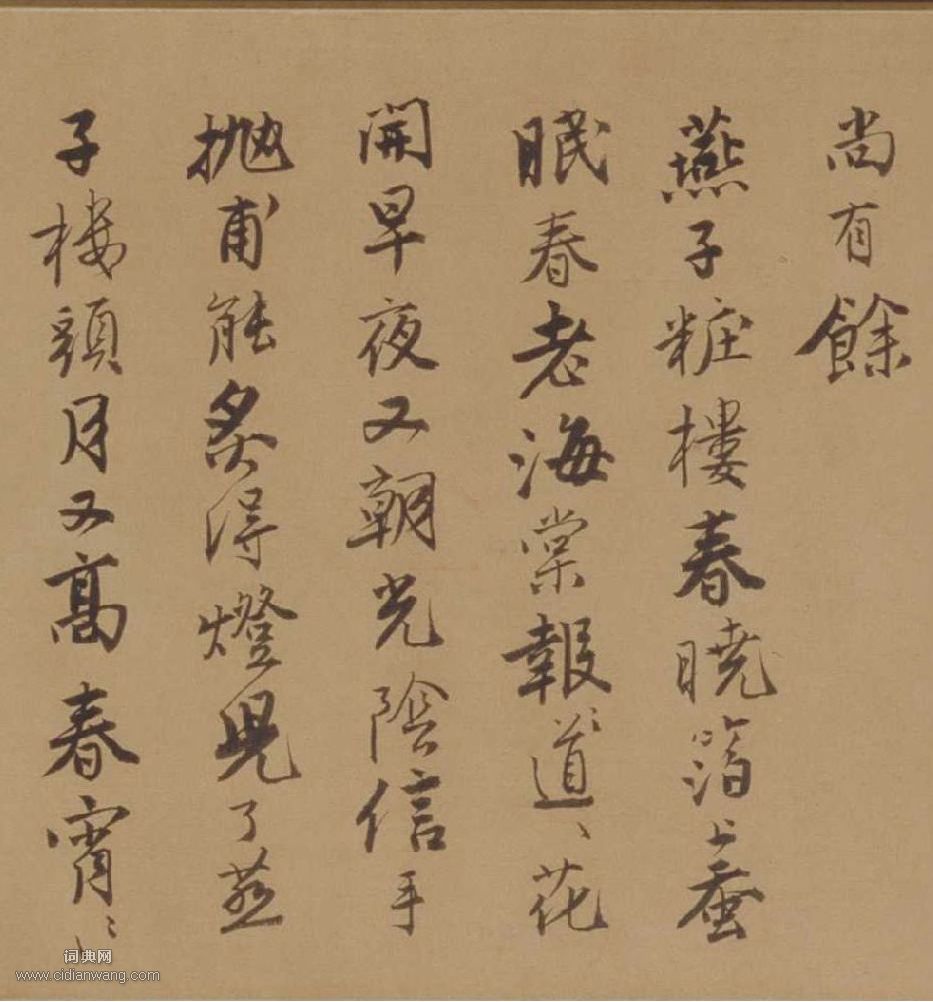 尚有餘
燕子粧樓春曉箔上蚕
眠春老海棠報道〻〻花
開早夜又朝光陰信手
抛甫能炙得燈兒了燕
子樓頭月又高春宵〻〻
词典网
www.cidianwang.com